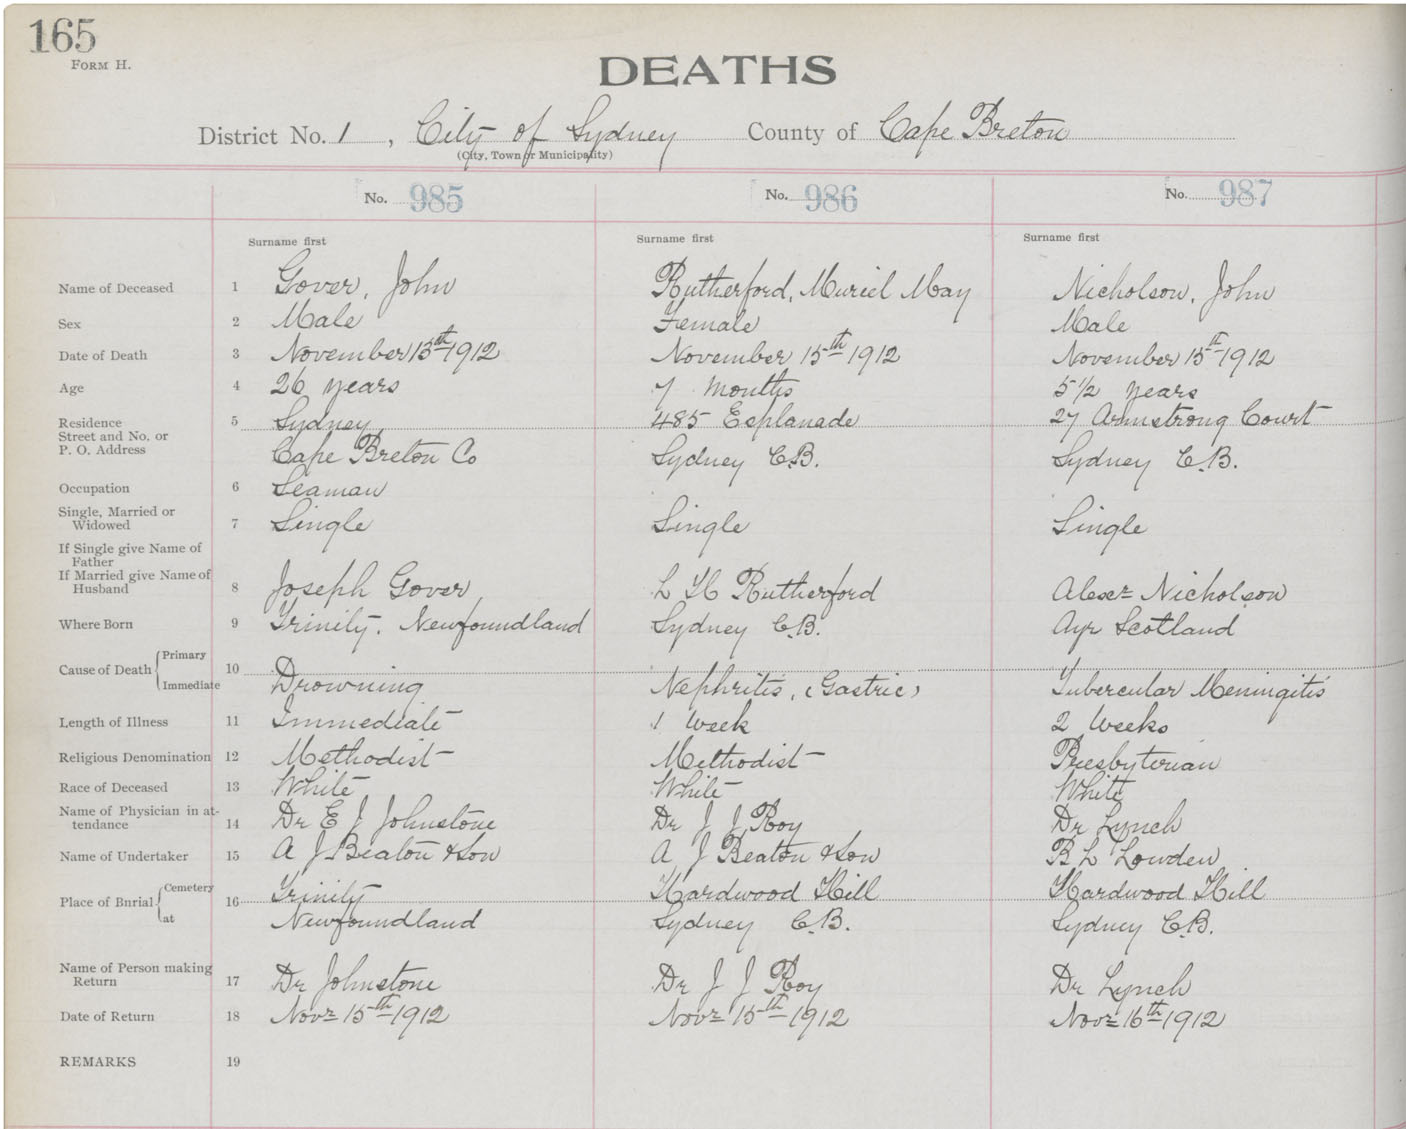 165
FORM H.
DEATHS
District No. 1, City of Sydney County of Cape Breton
(City, Town or Municipality)
No. 985 No. 986 No. 987
Surname first Surname first Surname first
Name of Deceased 1 Gover, John Rutherford, Muriel May Nicholson, John
Sex 2 Male Female Male
Date of Death 3 November 13th 1912 November 15th 1912 November 15th 1912
Age 4 26 years 7 months 5 1/2 years
Residence 5 Sydney 485 Esplanade 27 Armstrong Court
Street and No. or
P. O. Address Cape Breton Co Sydney C.B. Sydney C.B.
Occupation 6 Seaman
Single, Married or
Widowed 7 Single Single Single
If Single give Name of
Father
If Married give Name of
Husband 8 Joseph Gover L H Rutherford Alexr Nicholson
Where Born 9 Trinity. Newfoundland Sydney C.B. Ayr Scotland
Primary
Cause of Death 10
Immediate Drowning Nephritis, (Gastric) Tubercular Meningitis
Length of Illness 11 Immediate 1 Week 2 Weeks
Religious Denomination 12 Methodist Methodist Presbyterian
Race of Deceased 13 White White White
Name of Physician in at-
tendance 14 Dr E J Johnstone Dr J J Roy Dr Lynch
Name of Undertaker 15 A J Beaton & Son A J Beaton & Son B L Lowden
Cemetery Trinity Hardwood Hill Hardwood Hill
Place of Burial 16
at Newfoundland Sydney C.B. Sydney C.B.
Name of Person making
Return 17 Dr Johnstone Dr J J Roy Dr Lynch
Date of Return 18 Novr 15th 1912 Novr 15th 1912 Novr 16th 1912
REMARKS 19